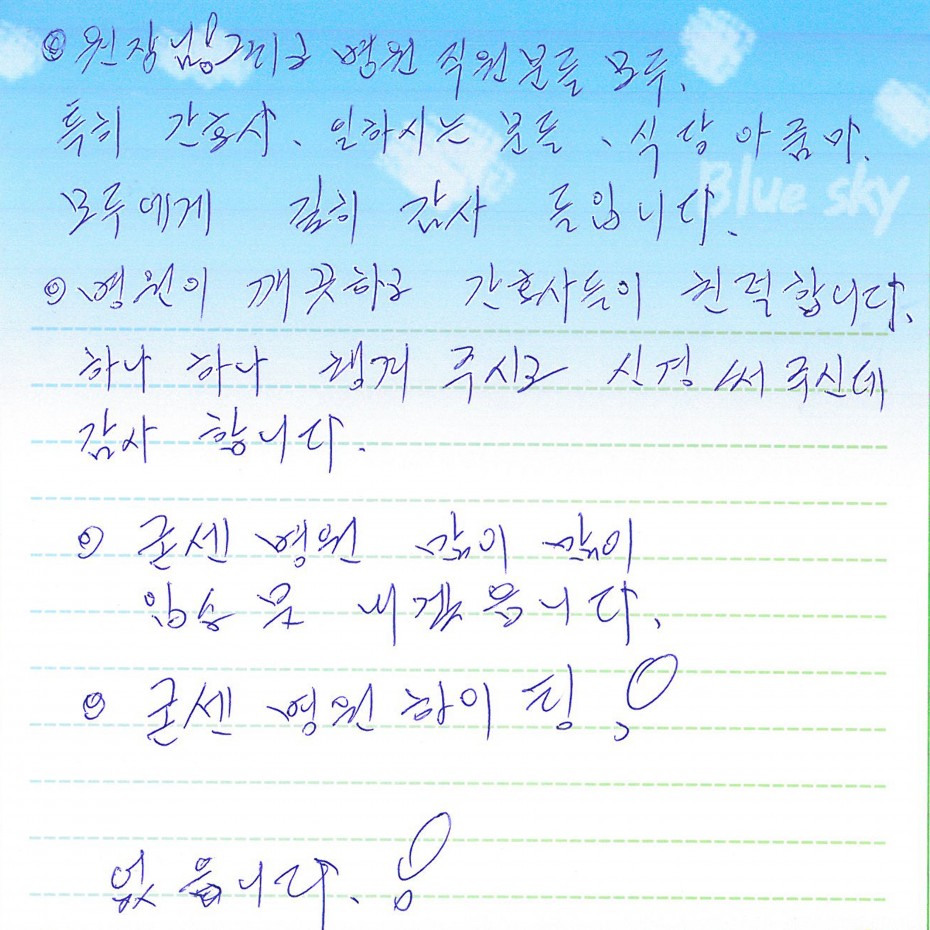 ◎ 원장님! 그리고 병원 직원분들 모두.
특히 간호사. 일하시는 분들, 식당 아줌마.
모두에게 깊히 감사 드립니다.
Blue sky
◎ 병원이 깨끗하고 간호사들이 친적합니다.
하나 하나 챙겨 주시고 신경 써 주신데
감사 합니다.
◎ 굳센 병원 많이 많이
입소문 내겠읍니다.
◎ 굳센 병원 화이팅!
없읍니다.!